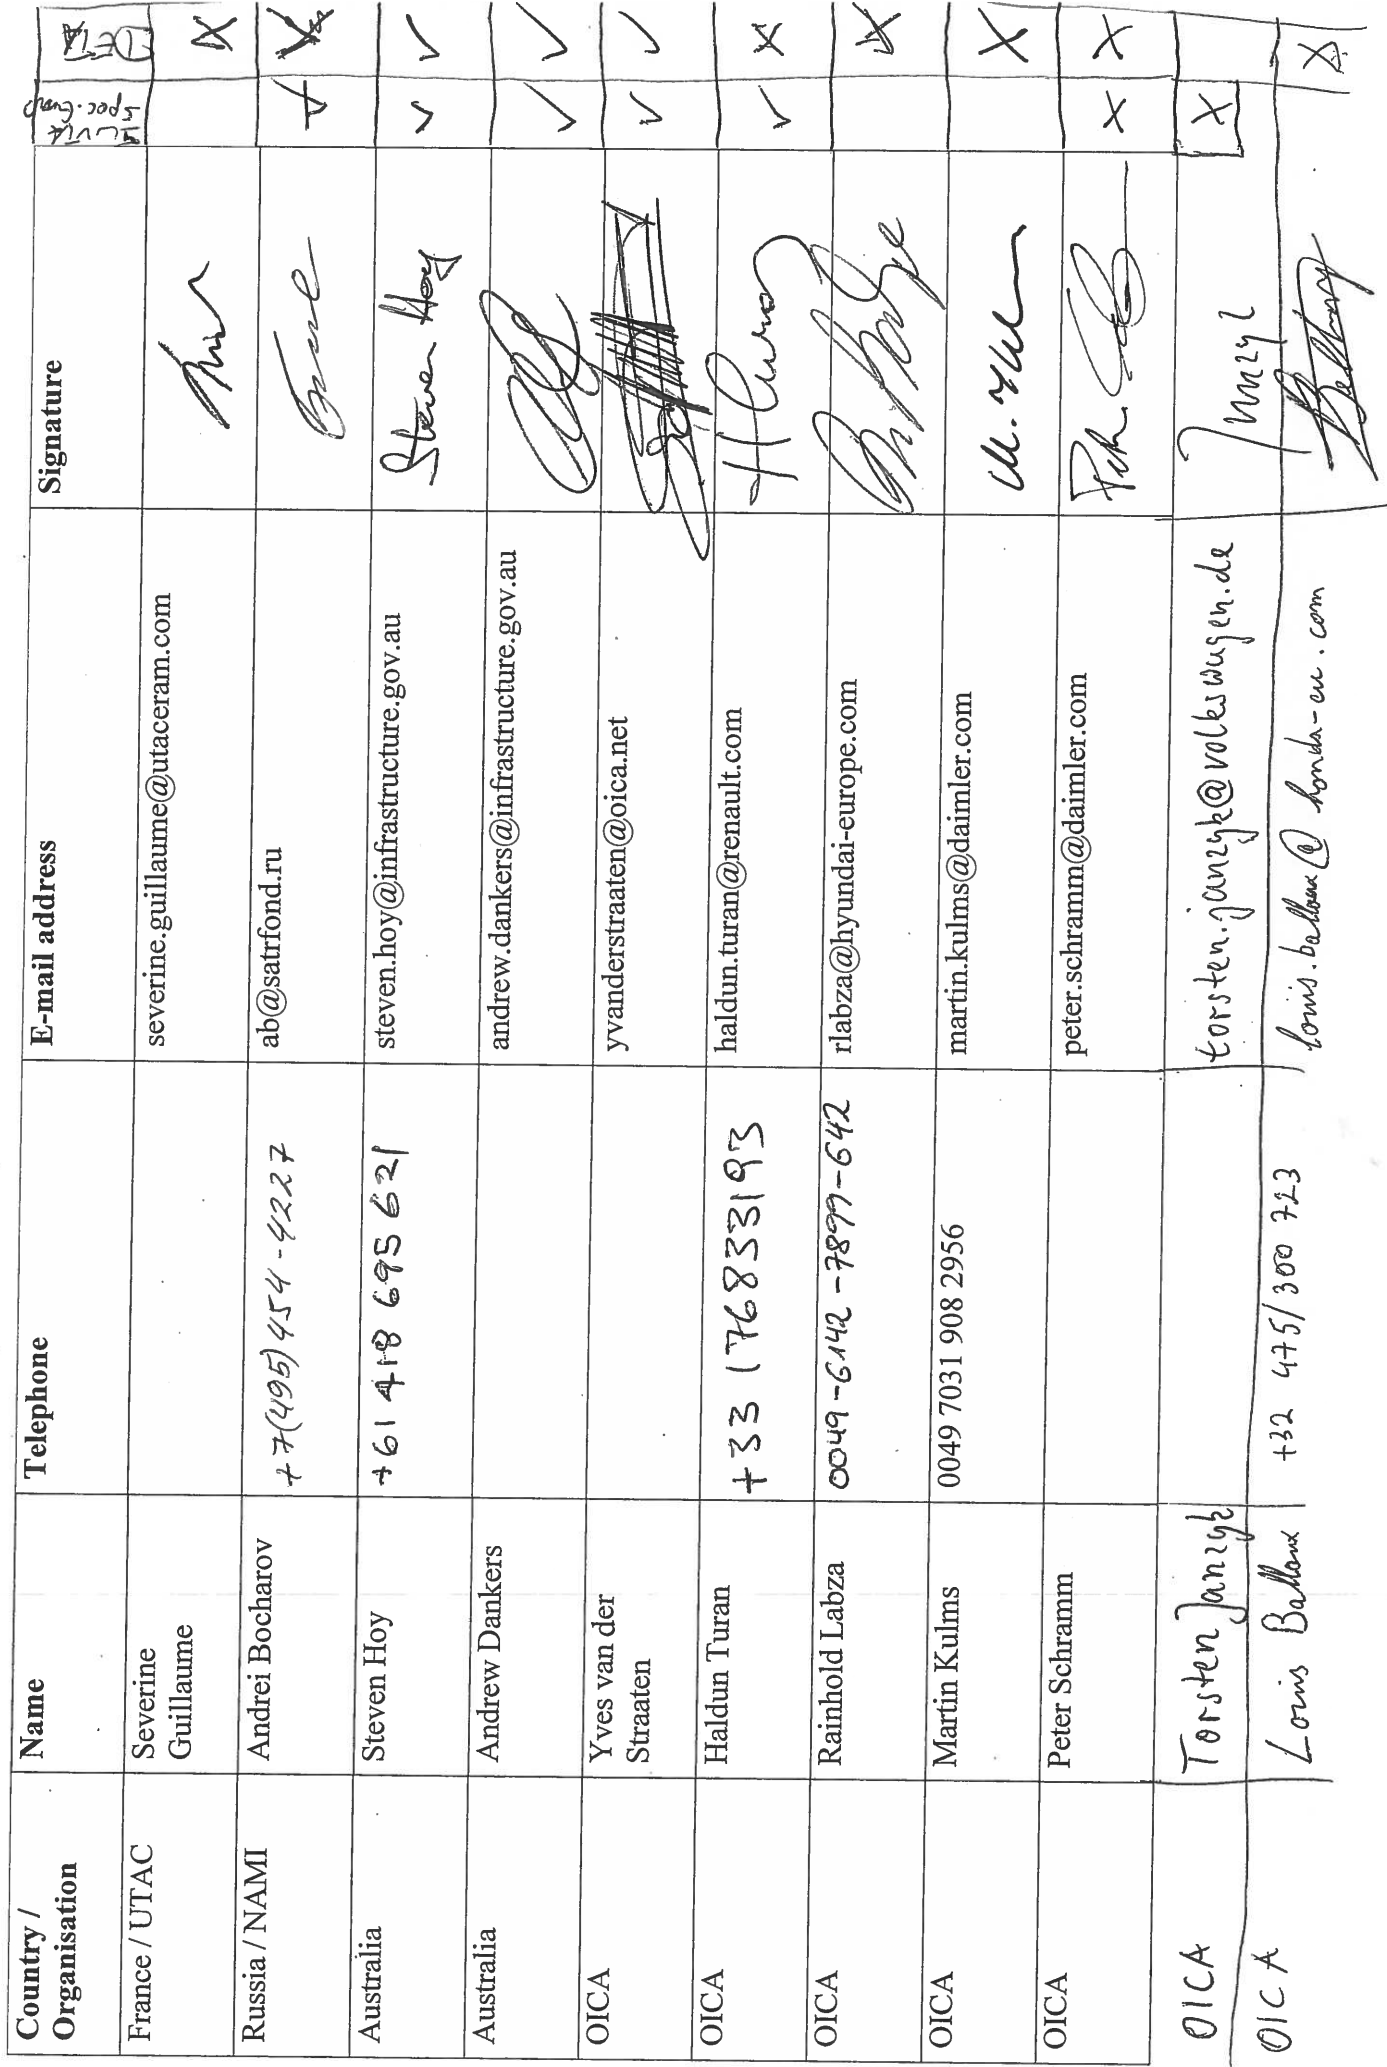 Country / Organisation Name Telephone E-mail address Signature IWVTA Spec. Group DETA
France / UTAC Severine Guillaume severine.guillaume@utaceram.com X
Russia / NAMI Andrei Bocharov +7(495)454-4227 ab@satrfond.ru
Australia Steven Hoy +61 418 695 621 steven.hoy@infrastructure.gov.au Steven Hoy ✓ ✓
Australia Andrew Dankers andrew.dankers@infrastructure.gov.au ✓ ✓
OICA Yves van der Straaten yvanderstraaten@oica.net ✓ ✓
OICA Haldun Turan +33 176833193 haldun.turan@renault.com ✓ X
OICA Rainhold Labza 0049-6142-7899-642 rlabza@hyundai-europe.com X
OICA Martin Kulms 0049 7031 908 2956 martin.kulms@daimler.com X
OICA Peter Schramm peter.schramm@daimler.com X X
OICA Torsten Janzyk torsten.janzyk@volkswagen.de X
OICA Louis Balloux +32 475/300 723 louis.balloux@honda-eu.com X